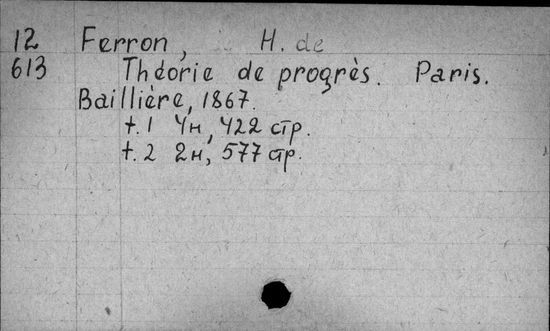 12 Ferron, H. de
613 Théorie de progrès. Paris.
Baillière, 1867.
t. 1 4н, 422 стр.
t. 2 2н, 577 стр.